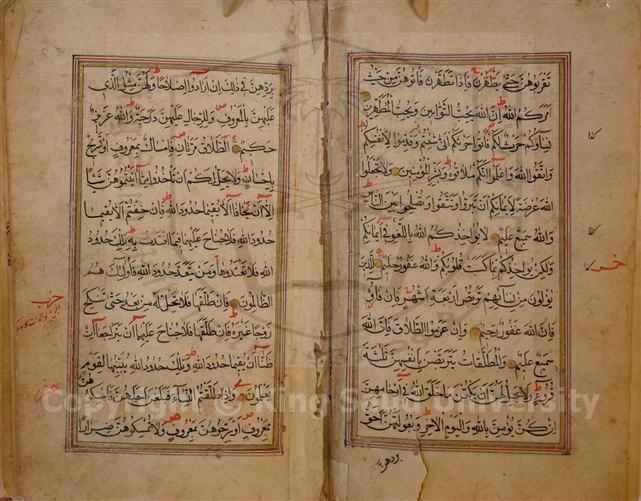 تَقْرَبُوهُنَّ حَتّٰى يَطْهُرْنَ فَاِذَا تَطَهَّرْنَ فَأْتُوهُنَّ مِنْ حَيْثُ
اَمَرَكُمُ اللهُ اِنَّ اللهَ يُحِبُّ التَّوَّابِينَ وَيُحِبُّ الْمُتَطَهِّرِينَ
نِسَاؤُكُمْ حَرْثٌ لَكُمْ فَأْتُوا حَرْثَكُمْ اَنّٰى شِئْتُمْ وَقَدِّمُوا لِاَنْفُسِكُمْ
وَاتَّقُوا اللهَ وَاعْلَمُوا اَنَّكُمْ مُلَاقُوهُ وَبَشِّرِ الْمُؤْمِنِينَ وَلَا تَجْعَلُوا
اللهَ عُرْضَةً لِاَيْمَانِكُمْ اَنْ تَبَرُّوا وَتَتَّقُوا وَتُصْلِحُوا بَيْنَ النَّاسِ
وَاللهُ سَمِيعٌ عَلِيمٌ لَا يُؤَاخِذُكُمُ اللهُ بِاللَّغْوِ فِي اَيْمَانِكُمْ
وَلٰكِنْ يُؤَاخِذُكُمْ بِمَا كَسَبَتْ قُلُوبُكُمْ وَاللهُ غَفُورٌ حَلِيمٌ لِلَّذِينَ
يُؤْلُونَ مِنْ نِسَائِهِمْ تَرَبُّصُ اَرْبَعَةِ اَشْهُرٍ فَاِنْ فَاؤُ
فَاِنَّ اللهَ غَفُورٌ رَحِيمٌ وَاِنْ عَزَمُوا الطَّلَاقَ فَاِنَّ اللهَ
سَمِيعٌ عَلِيمٌ وَالْمُطَلَّقَاتُ يَتَرَبَّصْنَ بِاَنْفُسِهِنَّ ثَلٰثَةَ
قُرُوءٍ وَلَا يَحِلُّ لَهُنَّ اَنْ يَكْتُمْنَ مَا خَلَقَ اللهُ فِي اَرْحَامِهِنَّ
اِنْ كُنَّ يُؤْمِنَّ بِاللهِ وَالْيَوْمِ الْاٰخِرِ وَبُعُولَتُهُنَّ اَحَقُّ
بردهن
بِرَدِّهِنَّ فِي ذٰلِكَ اِنْ اَرَادُوا اِصْلَاحًا وَلَهُنَّ مِثْلُ الَّذِي
عَلَيْهِنَّ بِالْمَعْرُوفِ وَلِلرِّجَالِ عَلَيْهِنَّ دَرَجَةٌ وَاللهُ عَزِيزٌ
حَكِيمٌ اَلطَّلَاقُ مَرَّتَانِ فَاِمْسَاكٌ بِمَعْرُوفٍ اَوْ تَسْرِيحٌ
بِاِحْسَانٍ وَلَا يَحِلُّ لَكُمْ اَنْ تَأْخُذُوا مِمَّا اٰتَيْتُمُوهُنَّ شَيْئًا
اِلَّا اَنْ يَخَافَا اَلَّا يُقِيمَا حُدُودَ اللهِ فَاِنْ خِفْتُمْ اَلَّا يُقِيمَا
حُدُودَ اللهِ فَلَا جُنَاحَ عَلَيْهِمَا فِيمَا افْتَدَتْ بِهِ تِلْكَ حُدُودُ
اللهِ فَلَا تَعْتَدُوهَا وَمَنْ يَتَعَدَّ حُدُودَ اللهِ فَاُولٰئِكَ هُمُ
الظَّالِمُونَ فَاِنْ طَلَّقَهَا فَلَا تَحِلُّ لَهُ مِنْ بَعْدُ حَتّٰى تَنْكِحَ
زَوْجًا غَيْرَهُ فَاِنْ طَلَّقَهَا فَلَا جُنَاحَ عَلَيْهِمَا اَنْ يَتَرَاجَعَا اِنْ
ظَنَّا اَنْ يُقِيمَا حُدُودَ اللهِ وَتِلْكَ حُدُودُ اللهِ يُبَيِّنُهَا لِقَوْمٍ
يَعْلَمُونَ وَاِذَا طَلَّقْتُمُ النِّسَاءَ فَبَلَغْنَ اَجَلَهُنَّ فَاَمْسِكُوهُنَّ
بِمَعْرُوفٍ اَوْ سَرِّحُوهُنَّ بِمَعْرُوفٍ وَلَا تُمْسِكُوهُنَّ ضِرَارًا
Copyright © King Saud University